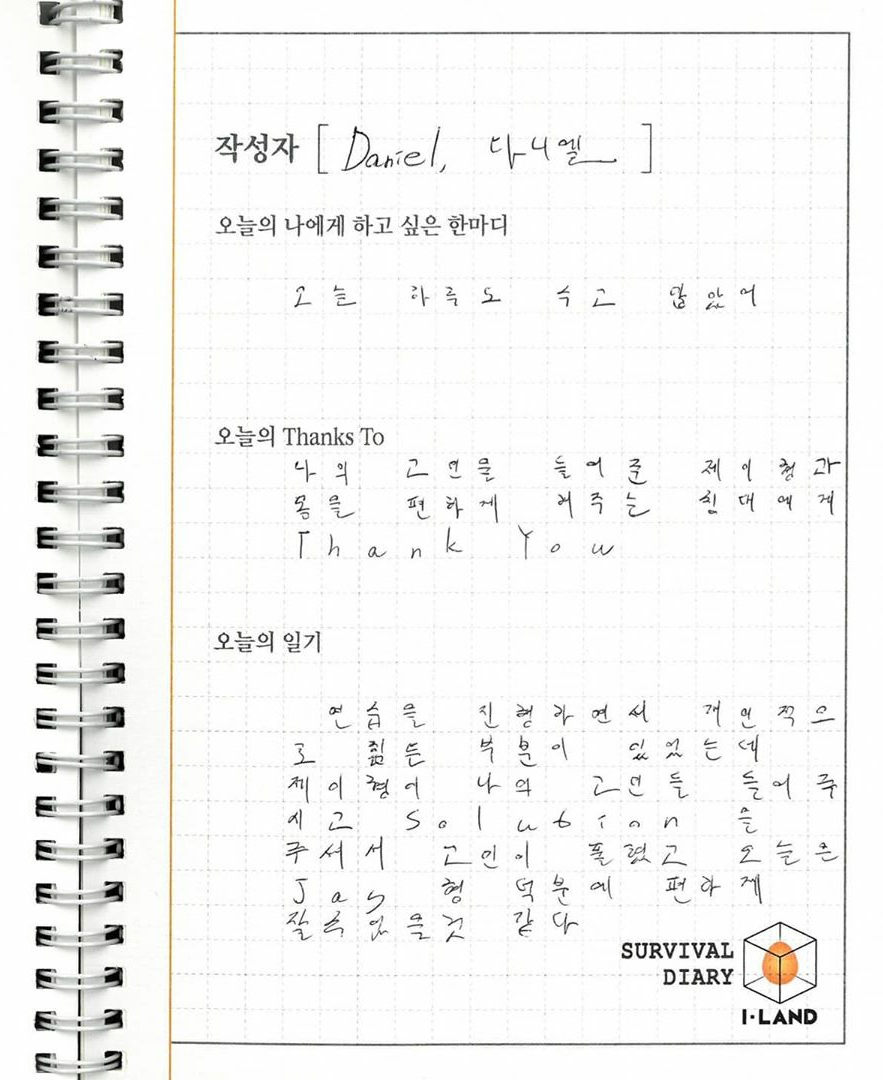 작성자 [ Daniel, 다니엘 ]
오늘의 나에게 하고 싶은 한마디
오늘 하루도 수고 많았어
오늘의 Thanks To
나의 고민을 들어준 제이형과
몸을 편하게 해주는 침대에게
Thank You
오늘의 일기
연습을 진행하면서 개인적으
로 힘든 부분이 있었는데
제이형이 나의 고민들 들어주
시고 Solution 을
주셔서 고민이 풀렸고 오늘은
Jay 형 덕분에 편하게
잘수 있을것 같다
SURVIVAL
DIARY
I·LAND